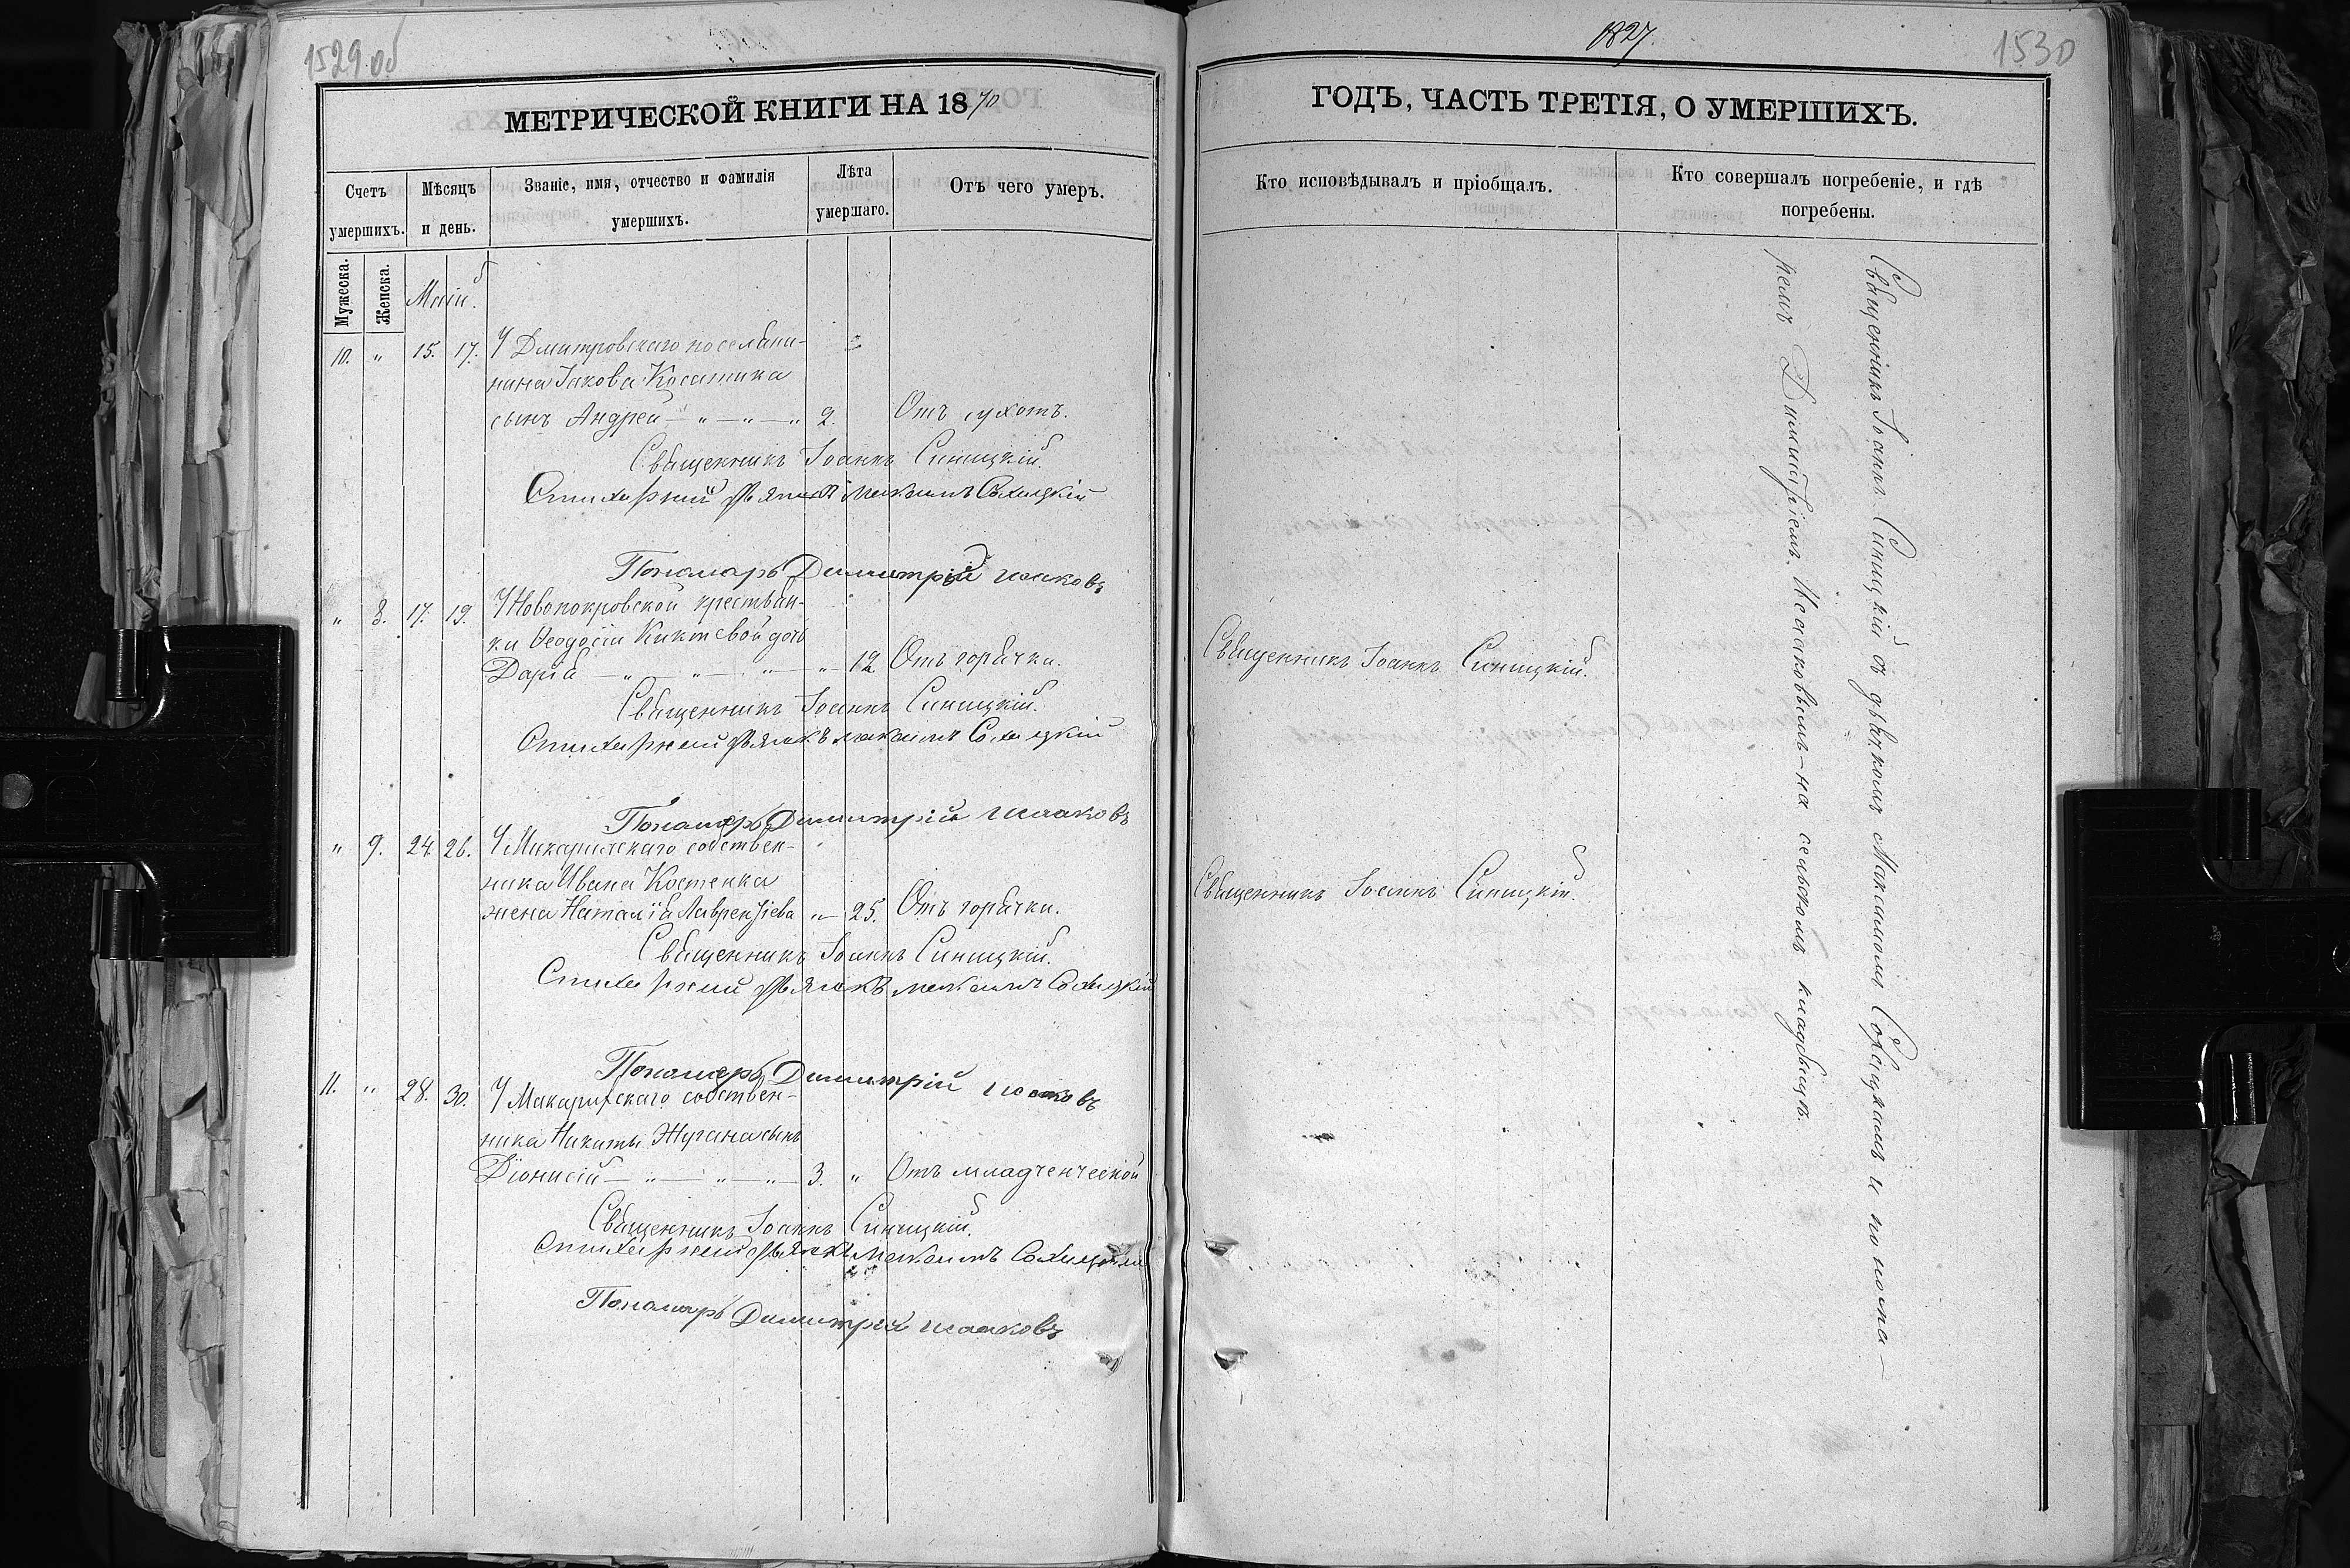 1529 об
МЕТРИЧЕСКОЙ КНИГИ НА 1870
Счетъ умершихъ.
Мѣсяцъ и день.
Званіе, имя, отчество и фамилія умершихъ.
Лѣта умершаго.
Отъ чего умеръ.
Мужеска.
Женска.
Маій.
10. " 15. 17. У Дмитровскаго поселяни-
нина Іакова Косатика
сынъ Андрей — " — " — " 2. Отъ сухотъ.
Священникъ Іоаннъ Синицкій.
Стихарный дьячокъ Максимъ Сохацкій
Пономарь Димитрій Исааковъ
" 8. 17. 19. У Новопокровской крестьян-
ки Ѳеодосіи Киктевой дочь
Дарія — " — " — " — " — 12 Отъ горячки.
Священникъ Іоаннъ Синицкій.
Стихарный дьячокъ Максимъ Сохацкій
Пономарь Димитрій Исааковъ
" 9. 24. 26. У Макарихскаго собствен-
ника Ивана Костенка
жена Наталія Лаврентіева " — 25. Отъ горячки.
Священникъ Іоаннъ Синицкій.
Стихарный дьячокъ Максимъ Сохацкій
Пономарь Димитрій Исааковъ
11. " 28. 30. У Макарихскаго собствен-
ника Никиты Жугана сынъ
Діонисій — " — " — " — 3. " Отъ младенческой
Священникъ Іоаннъ Синицкій.
Стихарный дьячокъ Максимъ Сохацкій
Пономарь Димитрій Исааковъ
1827.
1530
ГОДЪ, ЧАСТЬ ТРЕТІЯ, О УМЕРШИХЪ.
Кто исповѣдывалъ и пріобщалъ.
Кто совершалъ погребеніе, и гдѣ
погребены.
Священникъ Іоаннъ Синицкій.
Священникъ Іоаннъ Синицкій.
Священникъ Іоаннъ Синицкій съ дьячкомъ Максимомъ Сохацкимъ и понома-
ремъ Димитріемъ Исааковымъ — на сельскомъ кладбищѣ.